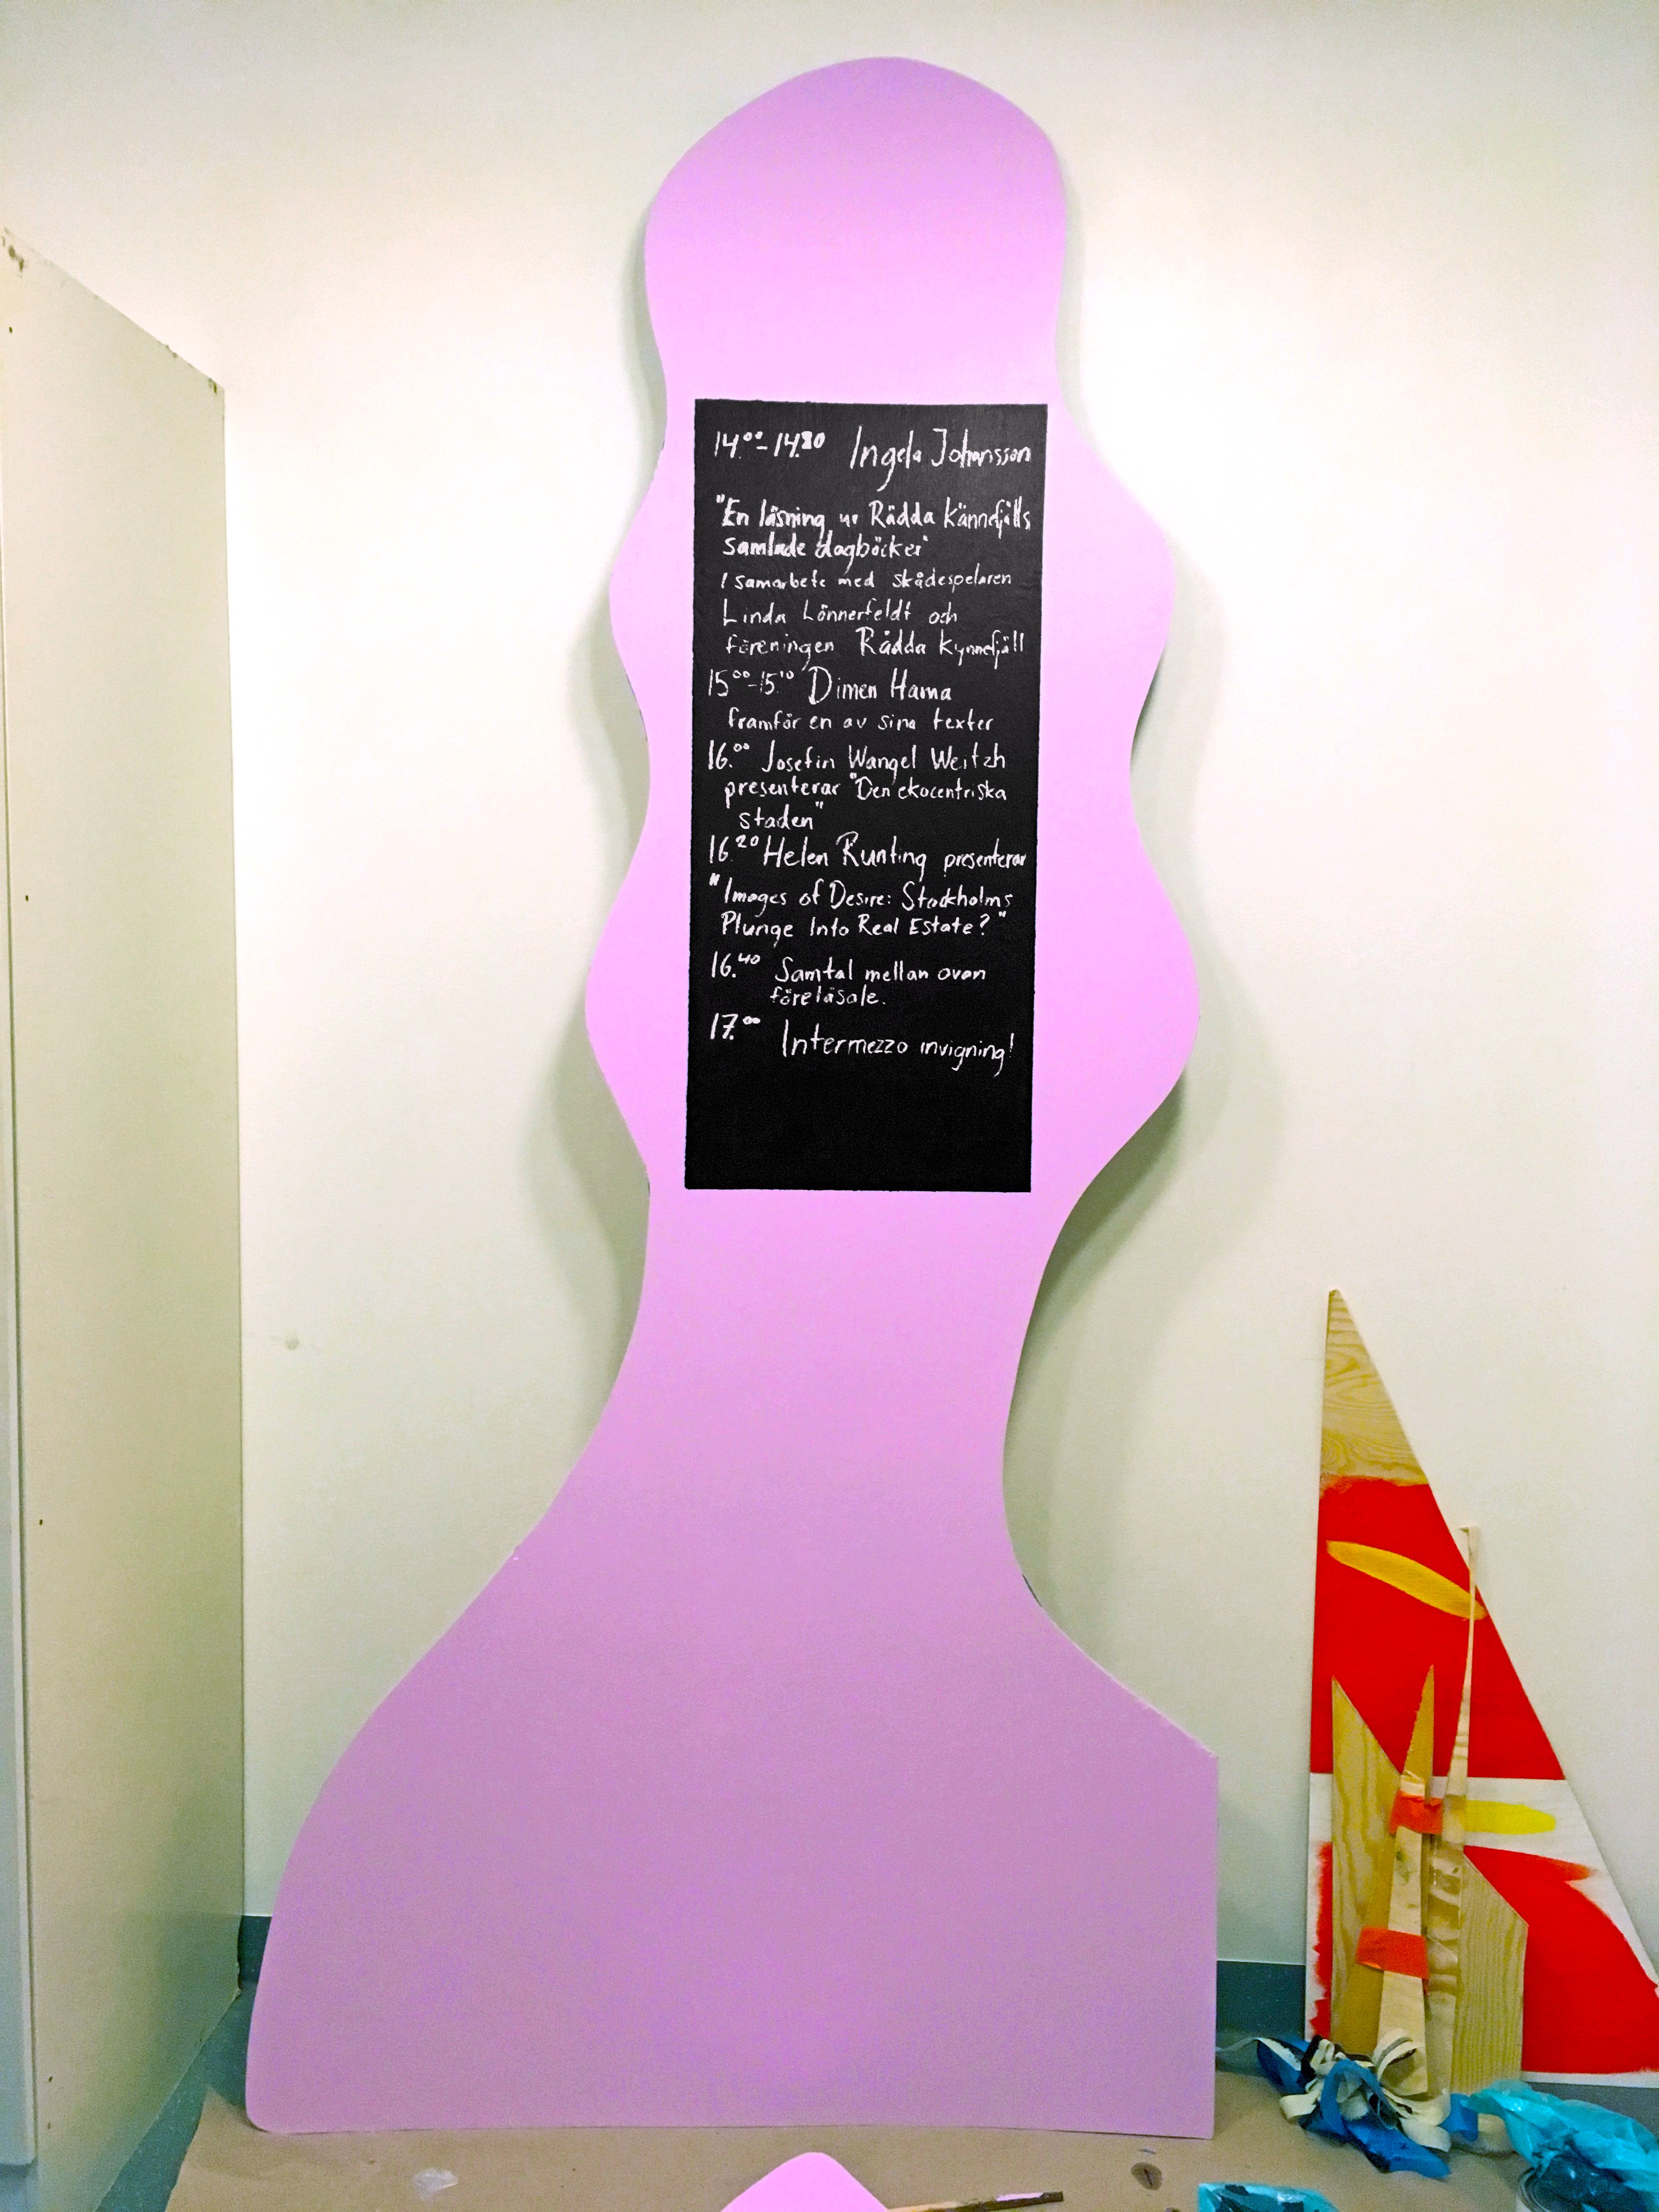 14.00-14.30 Ingela Johansson
"En läsning ur Rädda Kännefjälls
samlade dagböcker"
I samarbete med skådespelaren
Linda Lönnerfeldt och
föreningen Rädda Kynnefjäll
15.00-15.10 Dimen Hama
framför en av sina texter
16.00 Josefin Wangel Weitzh
presenterar "Den ekocentriska
staden"
16.20 Helen Runting presenterar
"Images of Desire: Stockholms
Plunge Into Real Estate?"
16.40 Samtal mellan ovan
föreläsale.
17.00 Intermezzo invigning!